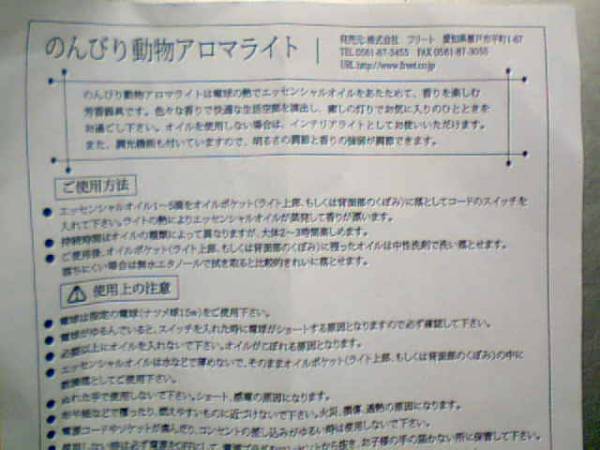 のんびり動物アロマライト
発売元:株式会社 フリート 愛知県瀬戸市平町1-67
TEL 0561-87-3455 FAX 0561-87-3056
URL:http://www.freet.co.jp
のんびり動物アロマライトは電球の熱でエッセンシャルオイルをあたためて、香りを楽しむ
芳香器具です。色々な香りで快適な生活空間を演出し、癒しの灯りでお気に入りのひとときを
お過ごし下さい。オイルを使用しない場合は、インテリアライトとしてお使いいただけます。
また、調光機能も付いていますので、明るさの調節と香りの強弱が調節できます。
ご使用方法
● エッセンシャルオイル1〜5滴をオイルポケット(ライト上部、もしくは背面部のくぼみ)に落としてコードのスイッチを
入れて下さい。ライトの熱によりエッセンシャルオイルが蒸発して香りが漂います。
● 持続時間はオイルの種類によって異なりますが、大体2〜3時間楽しめます。
● ご使用後、オイルポケット(ライト上部、もしくは背面部のくぼみ)に残ったオイルは中性洗剤で洗い落とせます。
落ちにくい場合は無水エタノールで拭き取ると比較的きれいに落とせます。
使用上の注意
● 電球は指定の電球(ナツメ球15w)をご使用下さい。
● 電球がゆるんでいると、スイッチを入れた時に電球がショートする原因となりますので必ず確認して下さい。
● 必要以上にオイルを入れないで下さい。オイルがこぼれる原因となります。
● エッセンシャルオイルは水などで薄めないで、そのままオイルポケット(ライト上部、もしくは背面部のくぼみ)の中に
数滴落としてご使用下さい。
● ぬれた手で使用しないで下さい。ショート、感電の原因になります。
● 布や紙などで覆ったり、燃えやすいものに近づけないで下さい。火災、損傷、過熱の原因になります。
● 電源コードやソケットが傷んだり、コンセントの差し込みがゆるい時は使用しないで下さい。
● 使用しない時は必ず電源をOFFにして、電源プラグをコンセントから抜き、お子様の手の届かない所に保管して下さい。